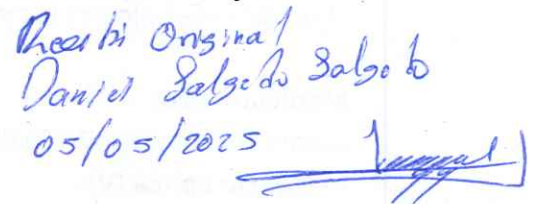 Recibi Original
Daniel Salgado Salgado
05/05/2025